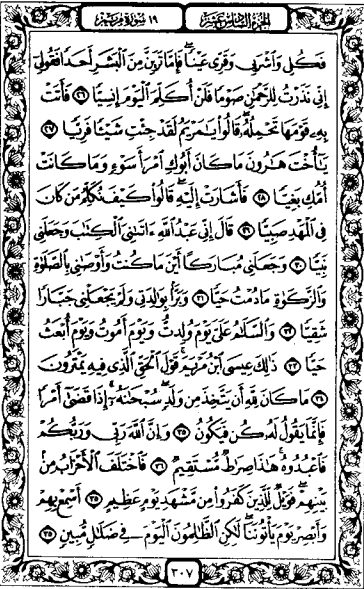 الجزء السادس عشر
١٩ سورة مريم
فَكُلِى وَٱشْرَبِى وَقَرِّى عَيْنًا ۖ فَإِمَّا تَرَيِنَّ مِنَ ٱلْبَشَرِ أَحَدًا فَقُولِىٓ
إِنِّى نَذَرْتُ لِلرَّحْمَٰنِ صَوْمًا فَلَنْ أُكَلِّمَ ٱلْيَوْمَ إِنسِيًّا ٢٦ فَأَتَتْ
بِهِۦ قَوْمَهَا تَحْمِلُهُۥ ۖ قَالُوا۟ يَٰمَرْيَمُ لَقَدْ جِئْتِ شَيْـًٔا فَرِيًّا ٢٧
يَٰٓأُخْتَ هَٰرُونَ مَا كَانَ أَبُوكِ ٱمْرَأَ سَوْءٍ وَمَا كَانَتْ
أُمُّكِ بَغِيًّا ٢٨ فَأَشَارَتْ إِلَيْهِ ۖ قَالُوا۟ كَيْفَ نُكَلِّمُ مَن كَانَ
فِى ٱلْمَهْدِ صَبِيًّا ٢٩ قَالَ إِنِّى عَبْدُ ٱللَّهِ ءَاتَىٰنِىَ ٱلْكِتَٰبَ وَجَعَلَنِى
نَبِيًّا ٣٠ وَجَعَلَنِى مُبَارَكًا أَيْنَ مَا كُنتُ وَأَوْصَٰنِى بِٱلصَّلَوٰةِ
وَٱلزَّكَوٰةِ مَا دُمْتُ حَيًّا ٣١ وَبَرًّۢا بِوَٰلِدَتِى وَلَمْ يَجْعَلْنِى جَبَّارًا
شَقِيًّا ٣٢ وَٱلسَّلَٰمُ عَلَىَّ يَوْمَ وُلِدتُّ وَيَوْمَ أَمُوتُ وَيَوْمَ أُبْعَثُ
حَيًّا ٣٣ ذَٰلِكَ عِيسَى ٱبْنُ مَرْيَمَ ۚ قَوْلَ ٱلْحَقِّ ٱلَّذِى فِيهِ يَمْتَرُونَ
٣٤ مَا كَانَ لِلَّهِ أَن يَتَّخِذَ مِن وَلَدٍ ۖ سُبْحَٰنَهُۥٓ ۚ إِذَا قَضَىٰٓ أَمْرًا
فَإِنَّمَا يَقُولُ لَهُۥ كُن فَيَكُونُ ٣٥ وَإِنَّ ٱللَّهَ رَبِّى وَرَبُّكُمْ
فَٱعْبُدُوهُ ۚ هَٰذَا صِرَٰطٌ مُّسْتَقِيمٌ ٣٦ فَٱخْتَلَفَ ٱلْأَحْزَابُ مِنۢ
بَيْنِهِمْ ۖ فَوَيْلٌ لِّلَّذِينَ كَفَرُوا۟ مِن مَّشْهَدِ يَوْمٍ عَظِيمٍ ٣٧ أَسْمِعْ بِهِمْ
وَأَبْصِرْ يَوْمَ يَأْتُونَنَا ۖ لَٰكِنِ ٱلظَّٰلِمُونَ ٱلْيَوْمَ فِى ضَلَٰلٍ مُّبِينٍ ٣٨
٣٠٧